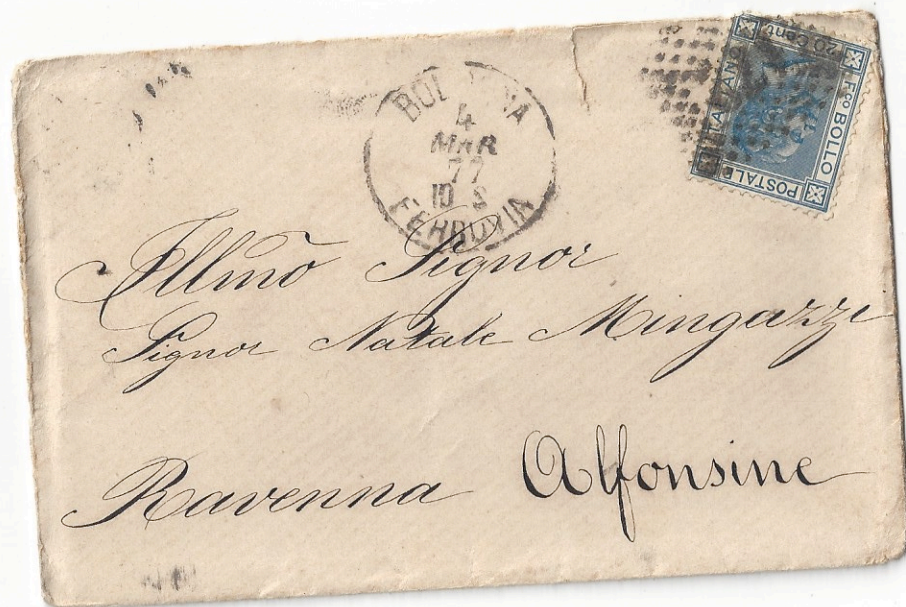 BOLOGNA
4
MAR
77
10 S
FERROVIA
20 Cent
ITALIANO
Fco BOLLO
POSTALE
Illmo Signor
Signor Natale Mingazzi
Ravenna Alfonsine